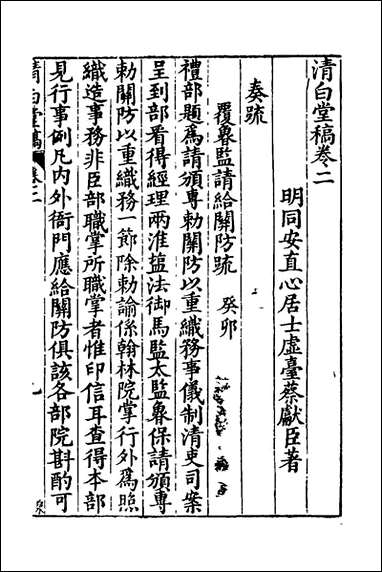 清白堂稿卷二
明同安直心居士虛臺蔡獻臣著
奏疏
覆魯監請給關防疏 癸卯
禮部題爲請頒專勅關防以重織務事儀制清吏司案
呈到部看得經理兩淮鹽法御馬監太監魯保請頒專
勅關防以重織務一節除勅諭係翰林院掌行外爲照
織造事務非臣部職掌所職掌者惟印信耳查得本部
見行事例凡內外衙門應給關防俱該各部院斟酌可
清白堂稿 卷二